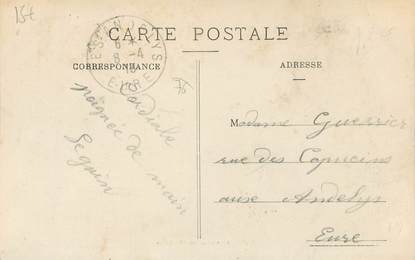 15€
CARTE POSTALE
CORRESPONDANCE
ADRESSE
LES ANDELYS
6 *
8 -4
EURE
Cordiale
poignée de main
Seguin
Madame Guerrier
rue des Capucins
aux Andelys
Eure